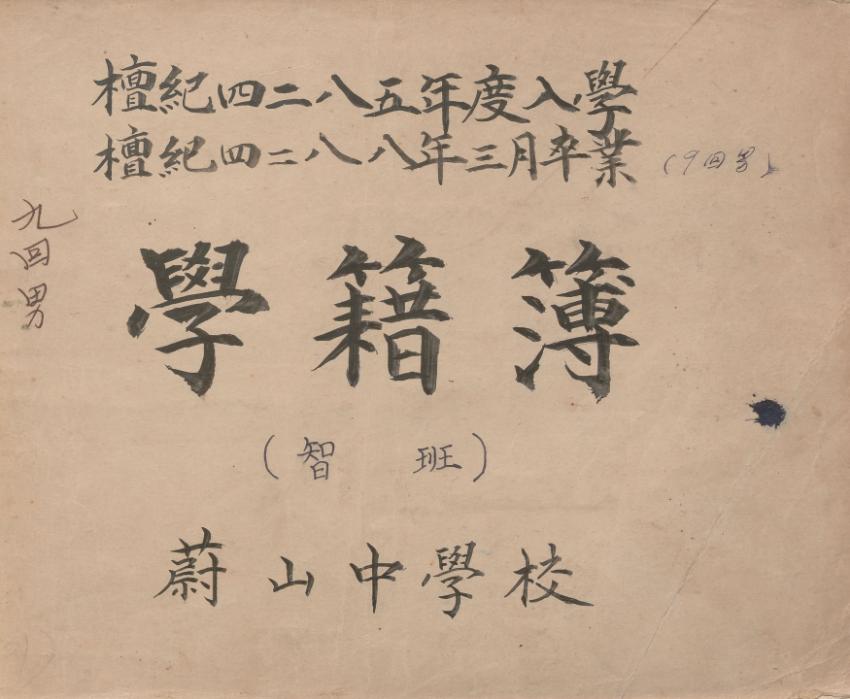 檀紀四二八五年度入學
檀紀四二八八年三月卒業 (9回男)
九回男
學籍簿
(智 班)
蔚山中學校